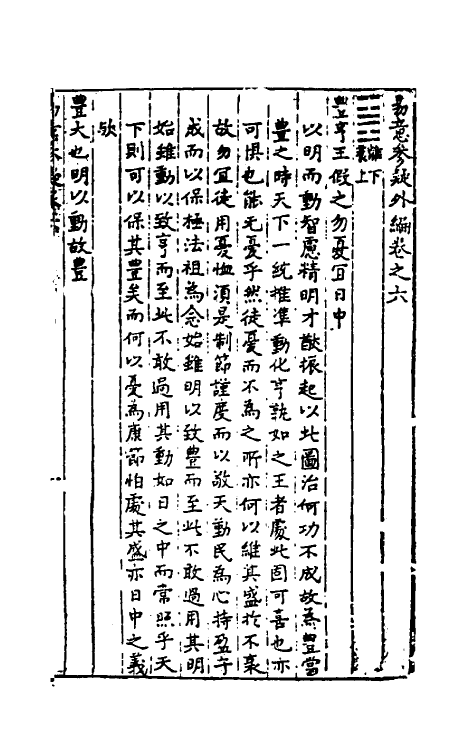 易意參疑外編卷之六
離下
震上
豐亨王假之勿憂宜日中
以明而動智慮精明才猷振起以此圖治何功不成故為豐當
豐之時天下一統推準動化亨孰如之王者處此固可喜也亦
可惧也能无憂乎然徒憂而不為之所亦何以維其盛於不衰
故勿宜徒用憂恤須是制節謹度而以敬天勤民為心持盈守
成而以保極法祖為念始雖明以致豊而至此不敢過用其明
始雖動以致亨而至此不敢過用其動如日之中而常照乎天
下則可以保其豊矣而何以憂為康節怕處其盛亦日中之義
欤
豊大也明以動故豊